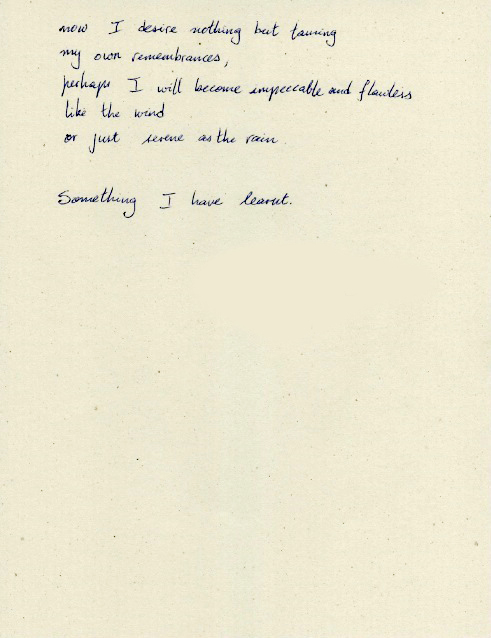 now I desire nothing but taming
my own remembrances,
perhaps I will become impeccable and flawless
like the wind
or just serene as the rain.
Something I have learnt.